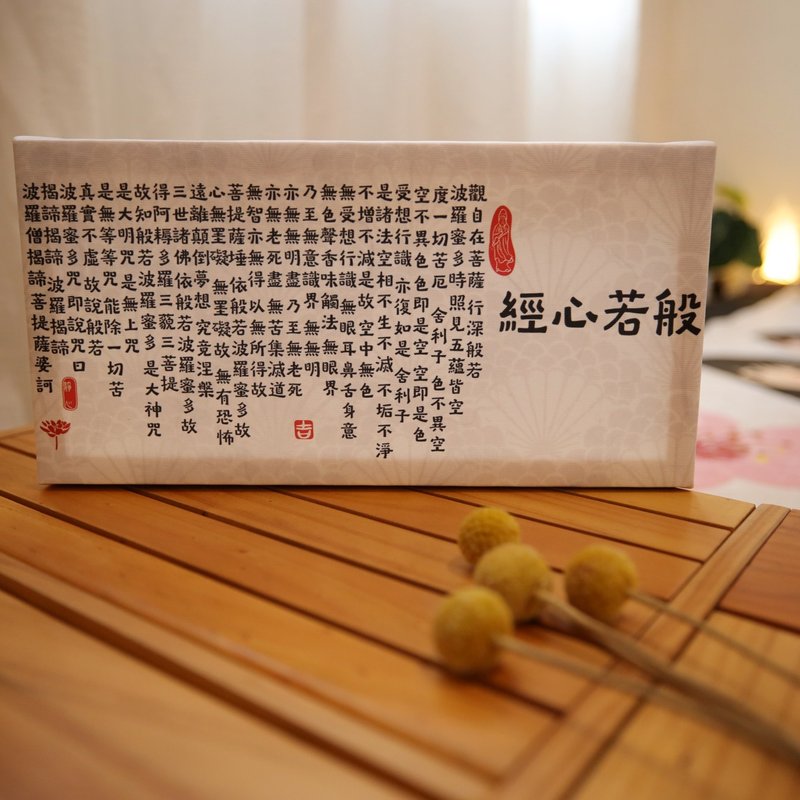 般若心經
觀自在菩薩 行深般若
波羅蜜多時 照見五蘊皆空
度一切苦厄 舍利子 色不異空
空不異色 色即是空 空即是色
受想行識 亦復如是 舍利子
是諸法空相 不生不滅 不垢不淨
不增不減 是故 空中無色
無受想行識 無眼耳鼻舌身意
無色聲香味觸法 無眼界
乃至無意識界 無無明
亦無無明盡 乃至無老死
亦無老死盡 無苦集滅道
無智亦無得 以無所得故
菩提薩埵 依般若波羅蜜多故
心無罣礙 無罣礙故 無有恐怖
遠離顛倒夢想 究竟涅槃
三世諸佛 依般若波羅蜜多故
得阿耨多羅三藐三菩提
故知般若波羅蜜多 是大神咒
是大明咒 是無上咒
是無等等咒 能除一切苦
真實不虛 故說般若
波羅蜜多咒 即說咒曰
揭諦揭諦 波羅揭諦
波羅僧揭諦 菩提薩婆訶
吉
靜心